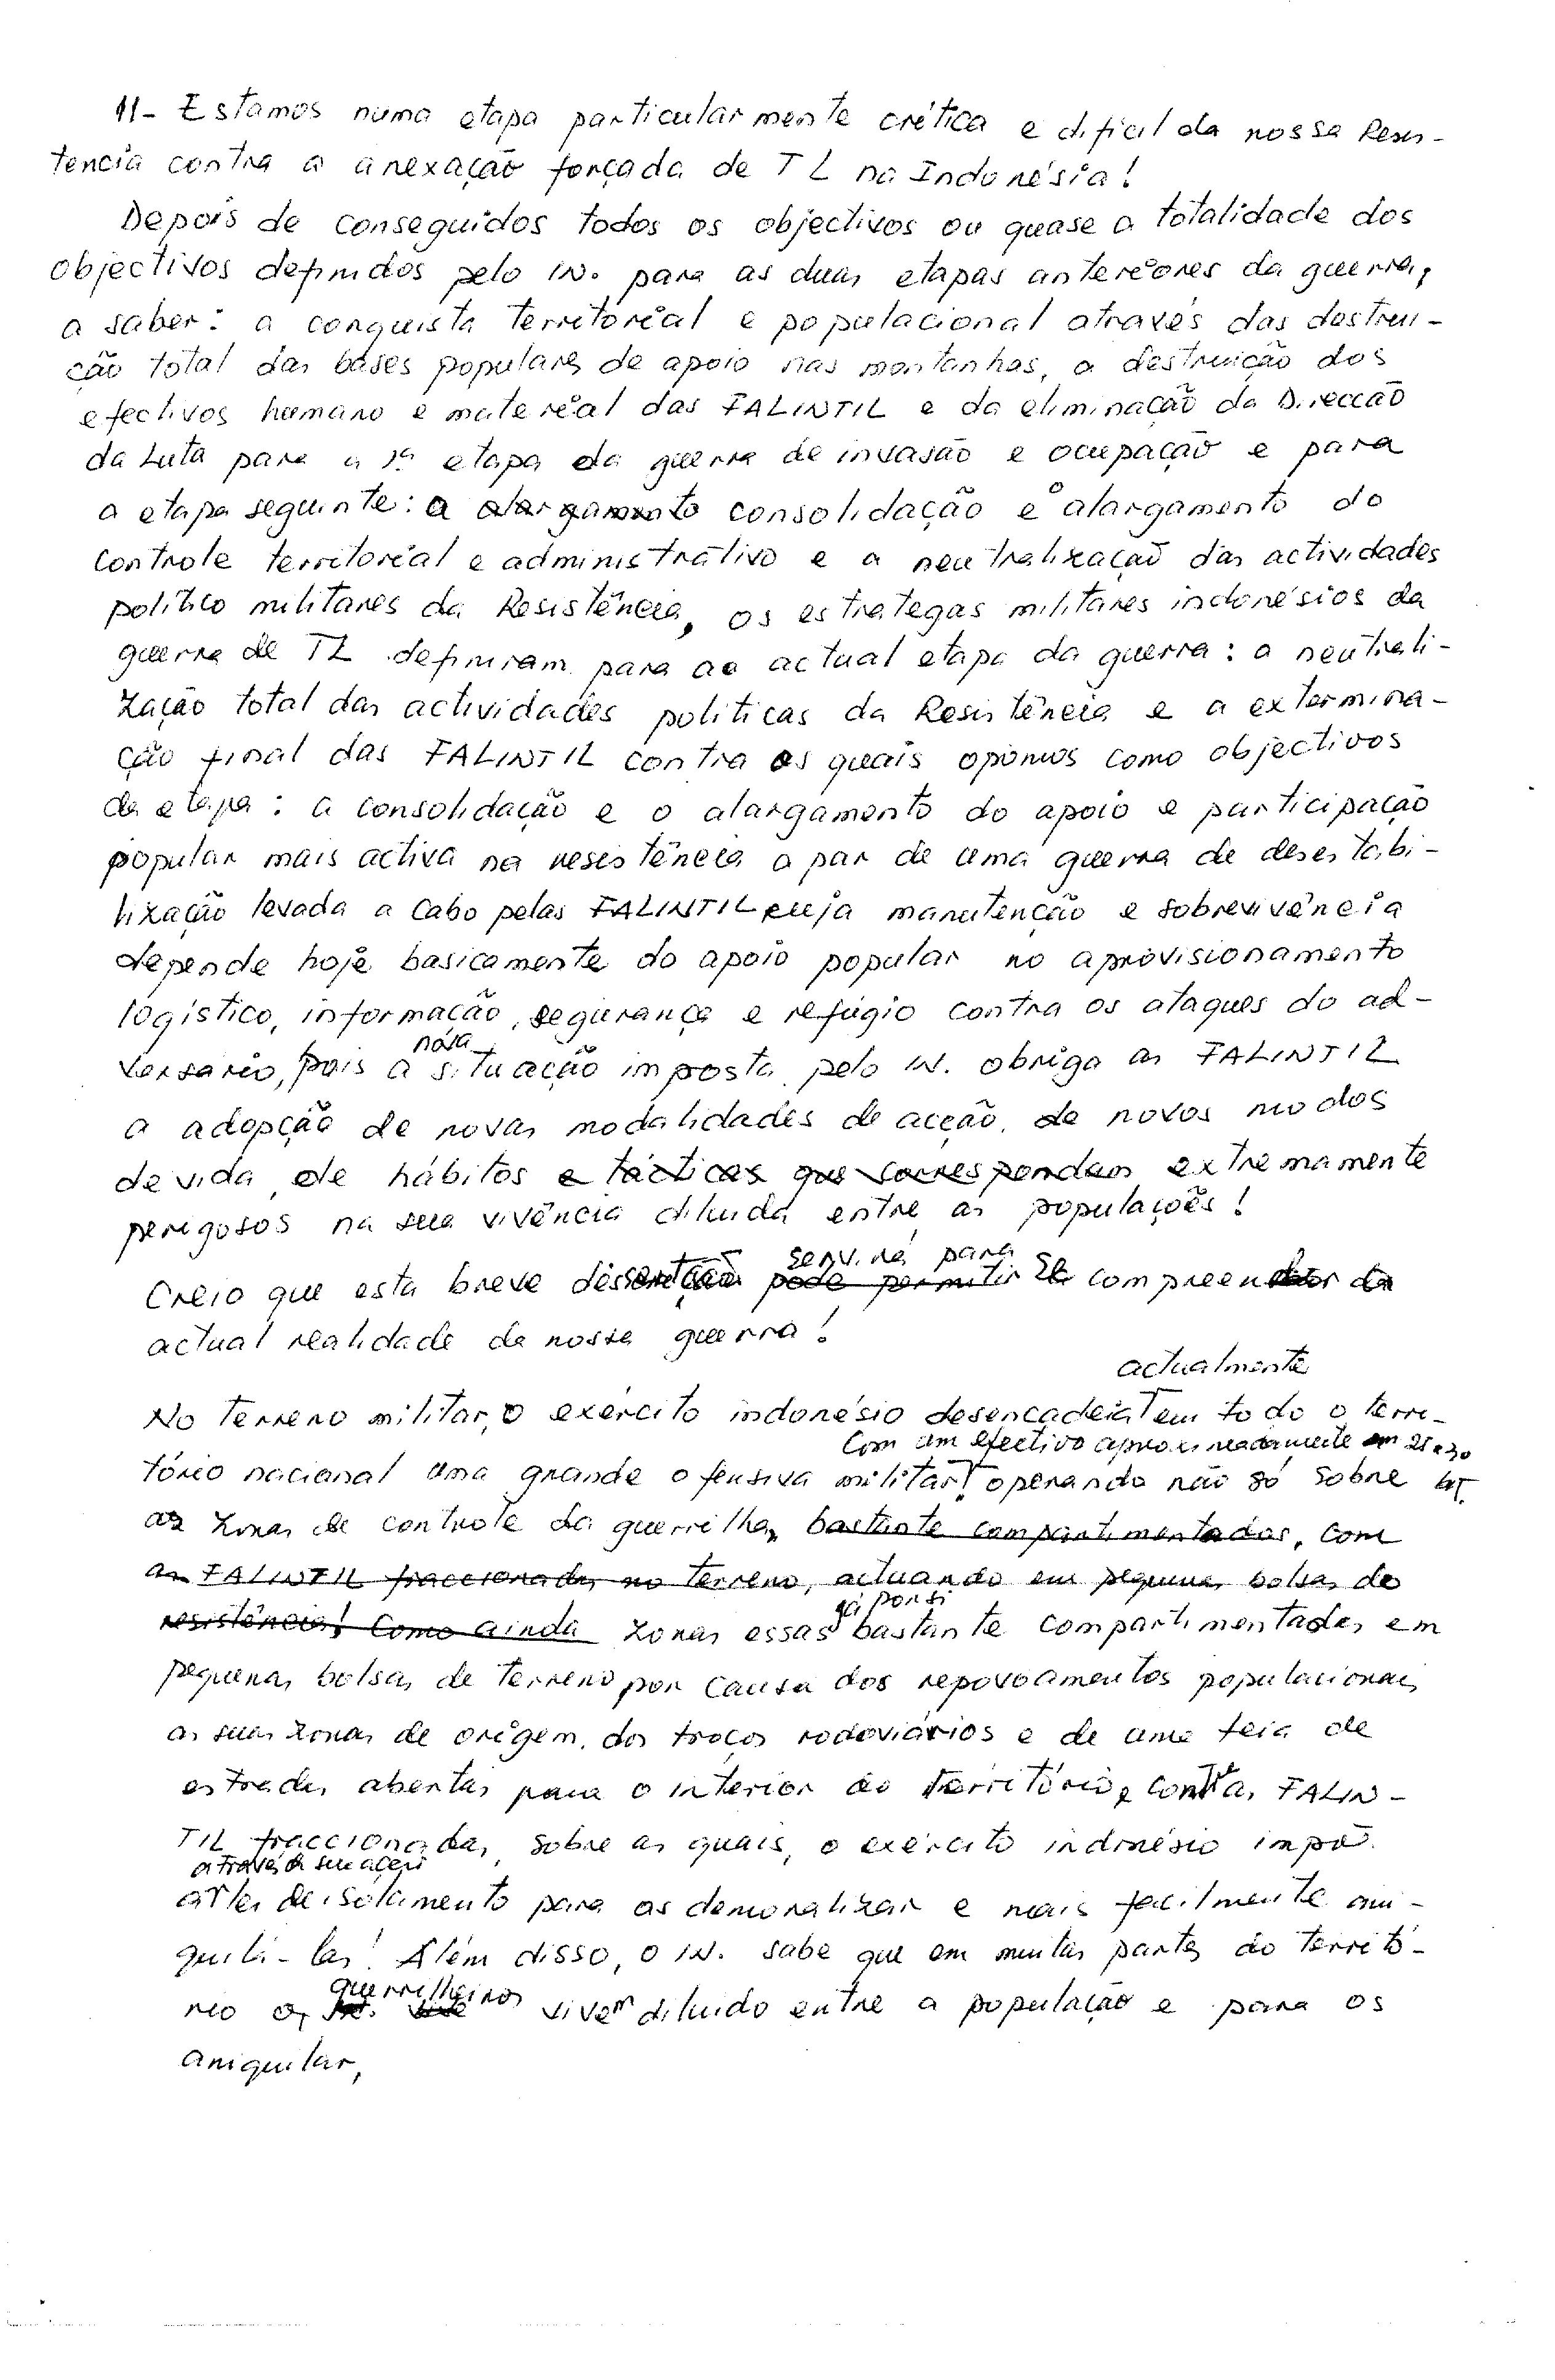 11- Estamos numa etapa particularmente crítica e dificil da nossa Resis-
tencia contra a anexação forçada de TL na Indonésia!
Depois de conseguidos todos os objectivos ou quase a totalidade dos
objectivos definidos pelo IN. para as duas etapas anteriores da guerra,
a saber: a conquista territorial e populacional através das destrui-
ção total das bases populares de apoio nas montanhas, a destruição dos
efectivos humano e material das FALINTIL e da eliminação da Direccão
da Luta para a 1ª etapa da guerra de invasão e ocupação e para
a etapa seguinte: a alargamento consolidação e o alargamento do
controle territorial e administrativo e a neutralização das actividades
politico militares da Resistência, os estrategas militares indonésios da
guerra de TL definiram para a actual etapa da guerra: a neutrali-
zação total das actividades politicas da Resistência e a extermina-
ção final das FALINTIL contra os quais opomos como objectivos
da etapa: a consolidação e o alargamento do apoio e participação
popular mais activa na resistência a par de uma guerra de desestabi-
lização levada a cabo pelas FALINTIL cuja manutenção e sobrevivência
depende hoje basicamente do apoio popular no aprovisionamento
logístico, informação, segurança e refúgio contra os ataques do ad-
nova
versario, pois a situação imposta pelo IN. obriga as FALINTIL
a adopção de novas modalidades de acção, de novos modos
de vida, de hábitos e tácticas que correspondam extremamente
perigosos na sua vivência diluida entre as populações!
servirá para
Creio que esta breve dissertação pode permitir se compreender da
actual realidade da nossa guerra!
actualmente
No terreno militar, o exército indonésio desencadeia em todo o terri-
com um efectivo aproximadamente em 25 a 30
tório nacional uma grande ofensiva militar! operando não só sobre bt.
as zonas de controle da guerrilha, bastante compartimentadas, com
as FALINTIL fraccionadas no terreno, actuando em pequenas bolsas de
já por si
resistência! Como ainda zonas essas bastante compartimentadas em
pequenas bolsas de terreno por causa dos repovoamentos populacionais
as suas zonas de origem, dos troços rodoviários e de uma teia de
estradas abertas para o interior do território, contra as FALIN-
TIL fraccionadas, sobre as quais, o exército indonésio impõe
através de sua acção
de isolamento para as demoralizar e mais facilmente ani-
quilá-las! Além disso, o IN. sabe que em muitas partes do territó-
guerrilheiros
rio os vivem diluido entre a população e para os
aniquilar,